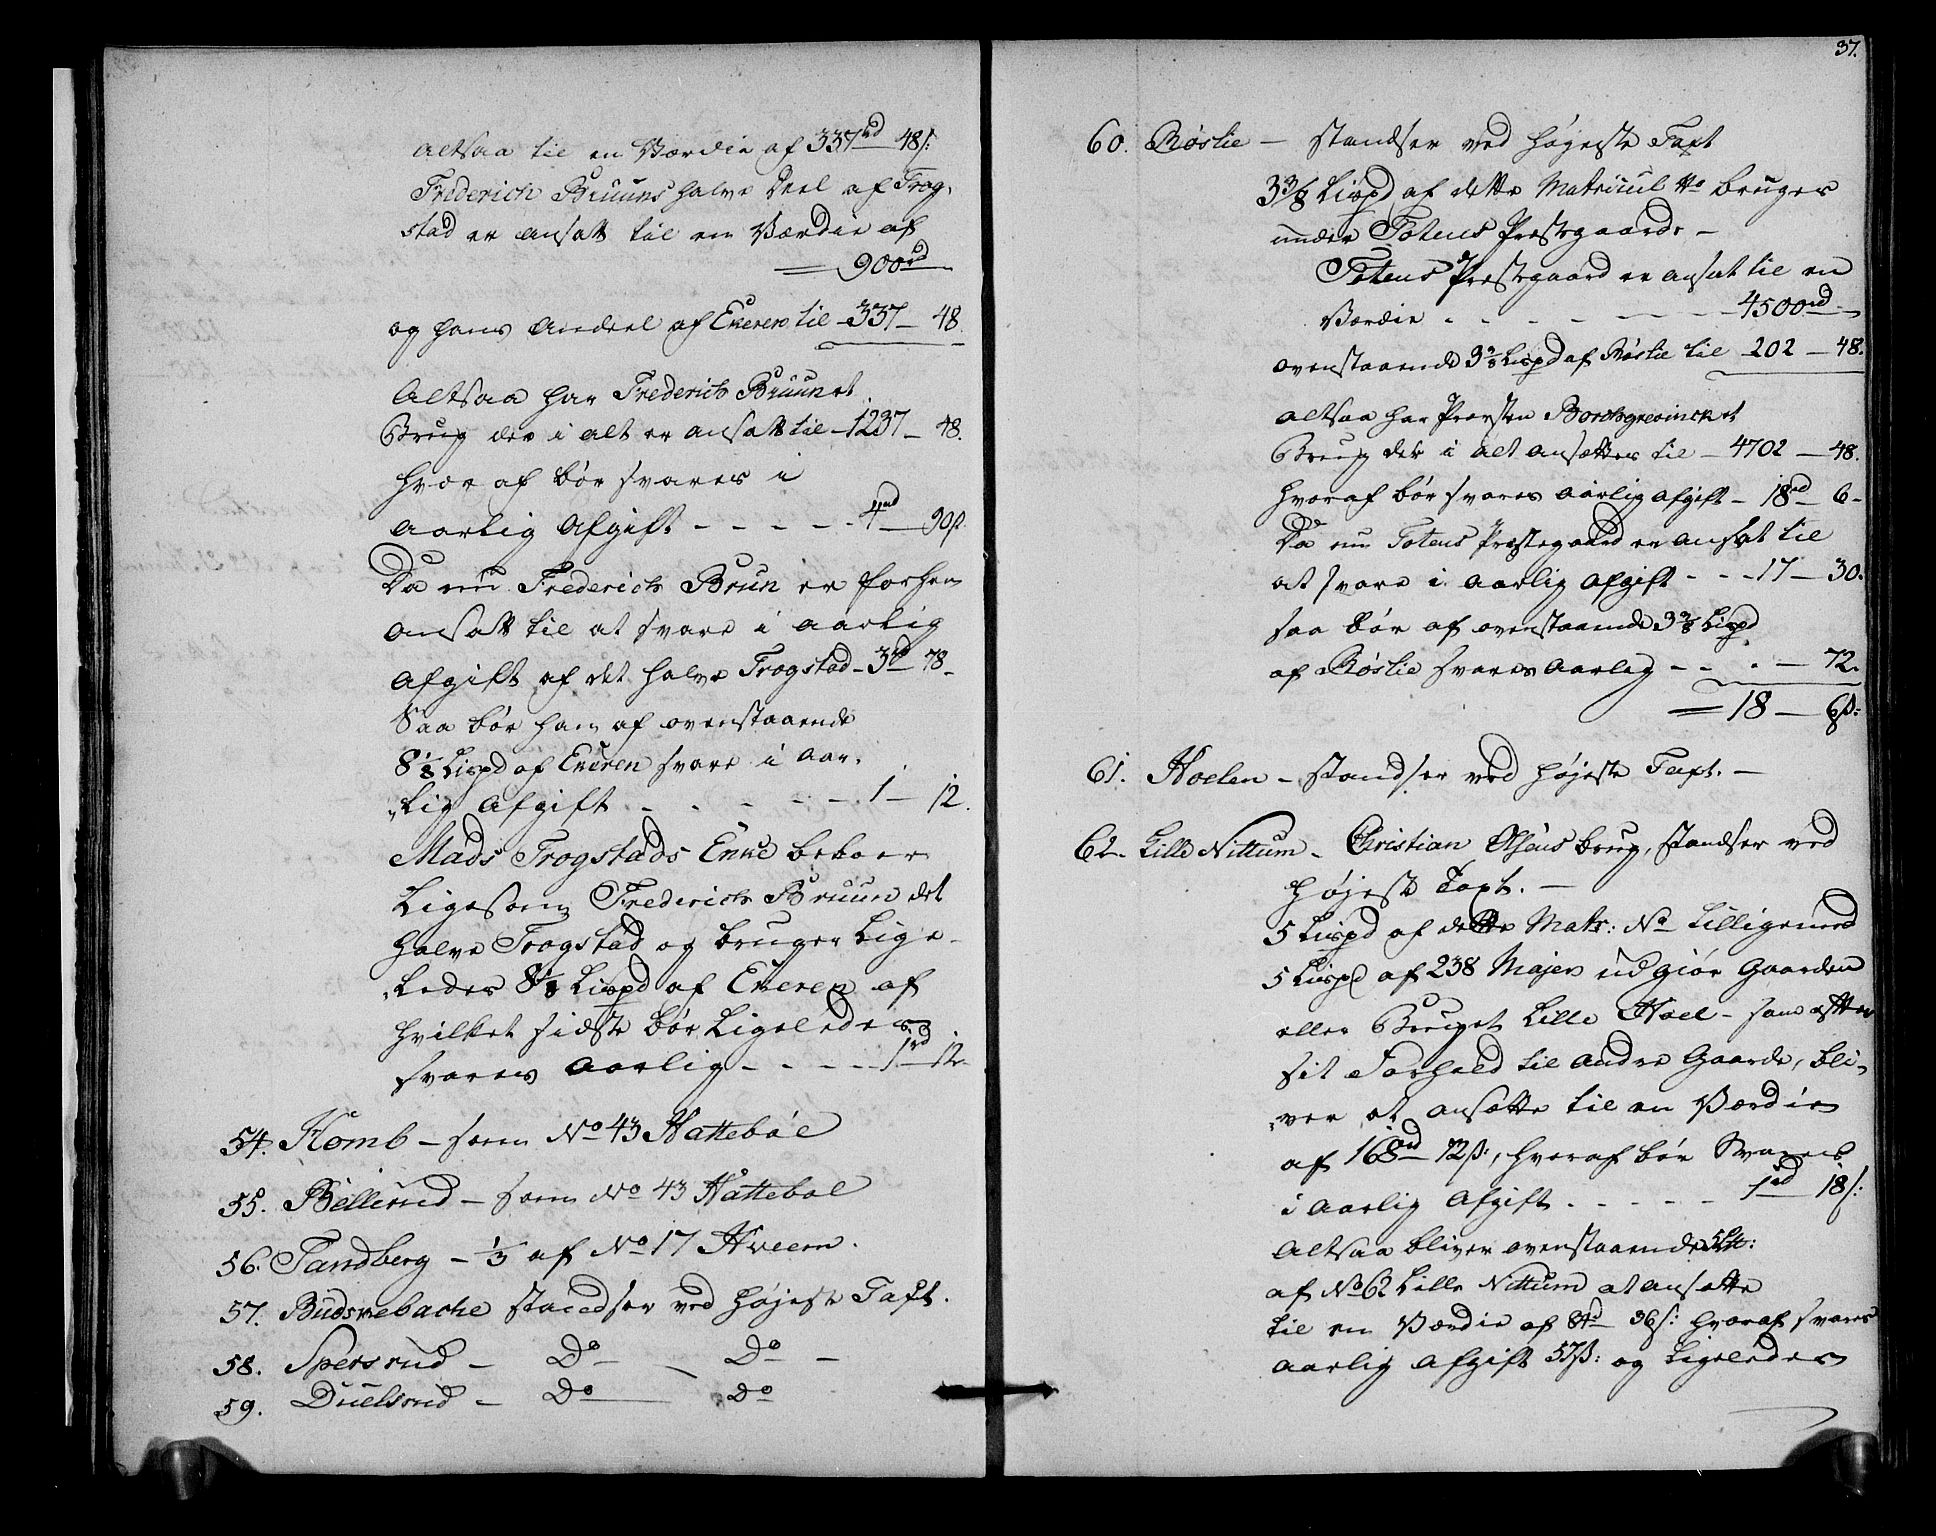 altsaa til en Værdie af 337rd 48ß:
Frederich Bruuns halve Deel af Trog,
stad er ansatt til en Værdie af
= 900rd
og hans Andeel af Eneren til - 337 - 48.
Altsaa har Frederich Bruun et
Brug der i alt er ansatt til - 1237 - 48.
hvor af bör svares i
aarlig Afgift - - - - - 4rd 90ß.
Da nu Frederich Brun er forhen
ansatt til at svare i aarlig
Afgift af det halve Trogstad - 3rd 78 -
Saa bör han af ovenstaaende
8 1/8 Lispd af Eneren svare i aar,
„lig Afgift - - - - - 1 - 12.
Mads Trogstads Enke beboer
Ligesom Frederich Bruun det
halve Trogstad og bruger Lige-
„ledes 8 1/8 Lispd af Eneren af
hvilket sidste bör Ligeledes
svares aarlig - - - - 1rd 12.
54. Homb - som No 43 Hatteböe
55. Bellerud - som No 43 Hatteboe
56. Sandberg - 1/3 af No 17 Hveem.
57. Budsnebache standser ved højeste Taxt.
58. Spersrud - Do - Do -
59. Duelsrud - Do Do
37.
60. Röslie - standser ved højeste Taxt
3 3/8 Lispd af dette Matricul No bruges
under Totens Præstgaard -
Totens Præstgaard er ansat til en
Værdie - - - - - 4500rd
ovenstaaende 3 3/8 Lispd af Röslie til 202 - 48.
altsaa har Provsten Borchgrevinck et
Brug der i alt ansættes til - 4702 - 48.
hvoraf bör svares aarlig Afgift - 18rd 6 -
Da nu Totens Præstegaard er ansat til
at svare i aarlig Afgift - - - 17 - 30.
saa bör af ovenstaaende 3 3/8 Lispd
af Röslie svares aarlig - - - 72.
= 18 - 6ß:
61. Hoelen - standser ved højeste Taxt. -
62. Lille Nittum - Christian Olsens brug, standser ved
højeste Taxt. -
5 Lispd af dette Matr: No Lilligemed
5 Lispd af 238 Majer udgiør Gaarden
eller Bruget Lille Hoel - som efter
sit Forhold til andre Gaarde, bli-
„ver at ansætte til en Værdie
af 168rd 72ß:, hvoraf bör Svares
i aarlig Afgift - - - - - 1rd 18ß:
Altsaa bliver ovenstaaende 5 L:
af No 62 Lille Nittum at ansætte
til en Værdie af 84rd 36ß: hvoraf svares
aarlig Afgift 57ß: og Ligeledes